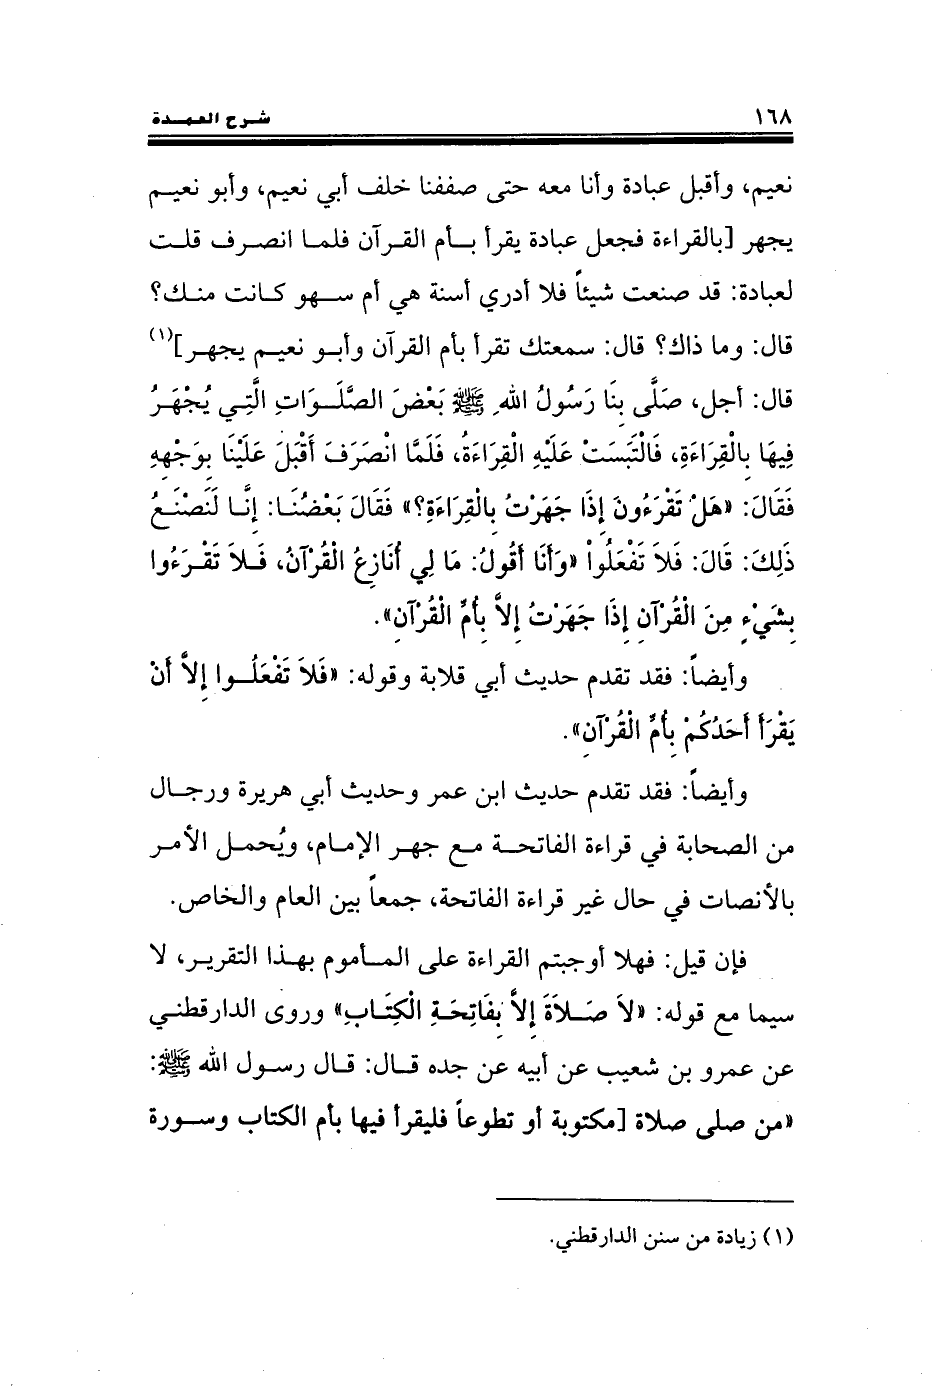 ١٦٨
شرح العمدة
نعيم، وأقبل عبادة وأنا معه حتى صففنا خلف أبي نعيم، وأبو نعيم
يجهر [بالقراءة فجعل عبادة يقرأ بأم القرآن فلما انصرف قلت
لعبادة: قد صنعت شيئاً فلا أدري أسنة هي أم سهو كانت منك؟
قال: وما ذاك؟ قال: سمعتك تقرأ بأم القرآن وأبو نعيم يجهر](١)
قال: أجل، صَلَّى بِنَا رَسُولُ اللهِ ﷺ بَعْضَ الصَّلَوَاتِ الَّتِي يُجْهَرُ
فِيهَا بِالْقِرَاءَةِ، فَالْتَبَسَتْ عَلَيْهِ الْقِرَاءَةُ، فَلَمَّا انْصَرَفَ أَقْبَلَ عَلَيْنَا بِوَجْهِهِ
فَقَالَ: «هَلْ تَقْرَءُونَ إِذَا جَهَرْتُ بِالْقِرَاءَةِ؟» فَقَالَ بَعْضُنَا: إِنَّا لَنَصْنَعُ
ذَلِكَ: قَالَ: فَلاَ تَفْعَلُواْ «وَأَنَا أَقُولُ: مَا لِي أُنَازِعُ الْقُرْآنُ، فَلاَ تَقْرَءُوا
بِشَيْءٍ مِنَ الْقُرْآنِ إِذَا جَهَرْتُ إِلاَّ بِأُمِّ الْقُرْآنِ».
وأيضاً: فقد تقدم حديث أبي قلابة وقوله: «فَلاَ تَفْعَلُوا إِلاَّ أَنْ
يَقْرَأَ أَحَدُكُمْ بِأُمِّ الْقُرْآنِ».
وأيضاً: فقد تقدم حديث ابن عمر وحديث أبي هريرة ورجال
من الصحابة في قراءة الفاتحة مع جهر الإمام، ويُحمل الأمر
بالأنصات في حال غير قراءة الفاتحة، جمعاً بين العام والخاص.
فإن قيل: فهلا أوجبتم القراءة على المأموم بهذا التقرير، لا
سيما مع قوله: «لاَ صَلاَةَ إِلاَّ بِفَاتِحَةِ الْكِتَابِ» وروى الدارقطني
عن عمرو بن شعيب عن أبيه عن جده قال: قال رسول الله ﷺ:
«من صلى صلاة [مكتوبة أو تطوعاً فليقرأ فيها بأم الكتاب وسورة
(١) زيادة من سنن الدارقطني.